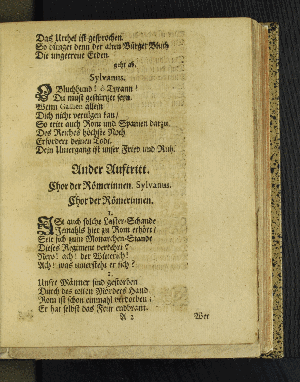 Das Urthel ist gesprochen.
So dünget denn der alten Bürger Bluth
Die ungetreue Erden.
geht ab.
Sylvanus.
O Bluthhund! ô Tyrann!
Du must gestürtzet seyn.
Wenn Gallien allein
Dich nicht vertilgen kan/
So tritt auch Rom und Spanien darzu.
Des Reiches höchste Noth
Erfordert deinen Todt.
Dein Untergang ist unser Fried und Ruh.
Ander Aufftritt.
Chor der Römerinnen. Sylvanus.
Chor der Römerinnen.
1.
Ist auch solche Laster-Schande
Jemahls hier zu Rom erhört/
Seit sich zum Monarchen-Stande
Dieses Regiment verkehrt?
Nero! ach! der Wüterich!
Ach! was untersteht er sich?
2.
Unsre Männer sind gestorben
Durch des tollen Mörders Hand
Rom ist schon einmahl verdorben;
Er hat selbst das Feur entbrant.
A 2
Wer